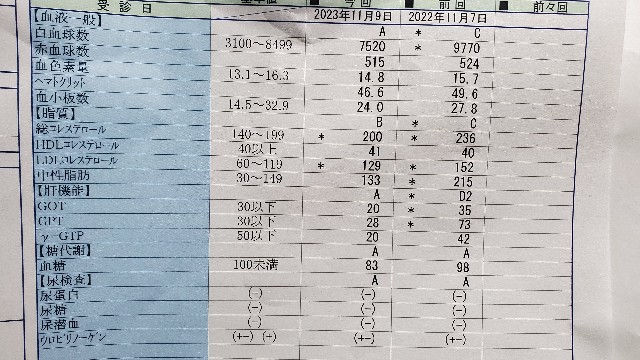 受 診 日 基準値 今 回 前 回 前々回
2023年11月9日 2022年11月7日
【血液一般】 A * C
白血球数 3100～8499 7520 * 9770
赤血球数 515 524
血色素量 13.1～16.3 14.8 15.7
ヘマトクリット 46.6 49.6
血小板数 14.5～32.9 24.0 27.8
【脂質】 B * C
総コレステロール 140～199 * 200 * 236
HDLコレステロール 40以上 41 40
LDLコレステロール 60～119 * 129 * 152
中性脂肪 30～149 133 * 215
【肝機能】 A * D2
GOT 30以下 20 * 35
GPT 30以下 28 * 73
γ-GTP 50以下 20 42
【糖代謝】 A A
血糖 100未満 83 98
【尿検査】 A A
尿蛋白 (-) (-) (-)
尿糖 (-) (-) (-)
尿潜血 (-) (-) (-)
ウロビリノーゲン (+-) (+) (+-) (+-)